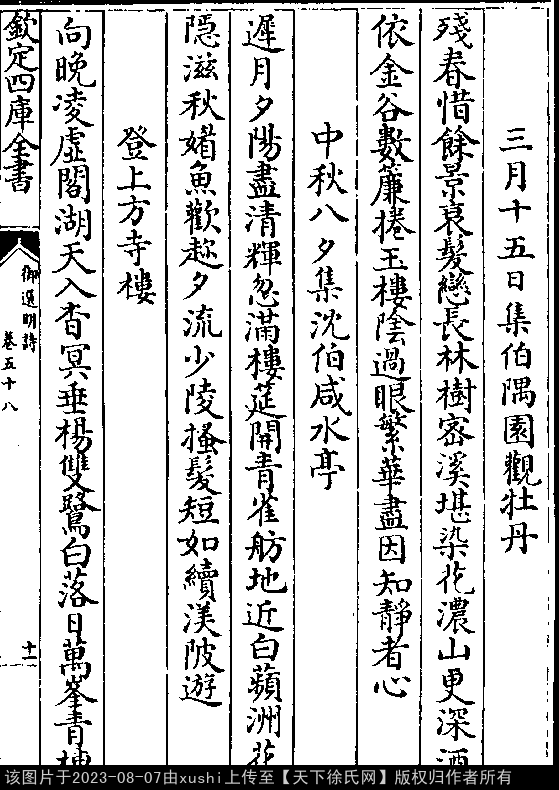 三月十五日集伯隅園觀牡丹
殘春惜餘景衰髮戀長林樹密溪堪染花濃山更深酒
依金谷數簾捲玉樓陰過眼繁華盡因知靜者心
中秋八夕集沈伯咸水亭
遲月夕陽盡清輝忽滿樓筵開青雀舫地近白蘋洲花
隱滋秋媚魚歡趂夕流少陵搔髮短如續渼陂遊
登上方寺樓
向晚凌虛閣湖天入杳冥垂楊雙鷺白落日萬峯青
欽定四庫全書
御選明詩
卷五十八
十一
该图片于2023-08-07由xushi上传至【天下徐氏网】版权归作者所有